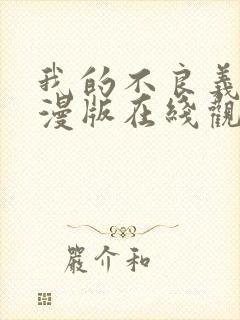 我的不良義
漫版在綫觀
嚴介和